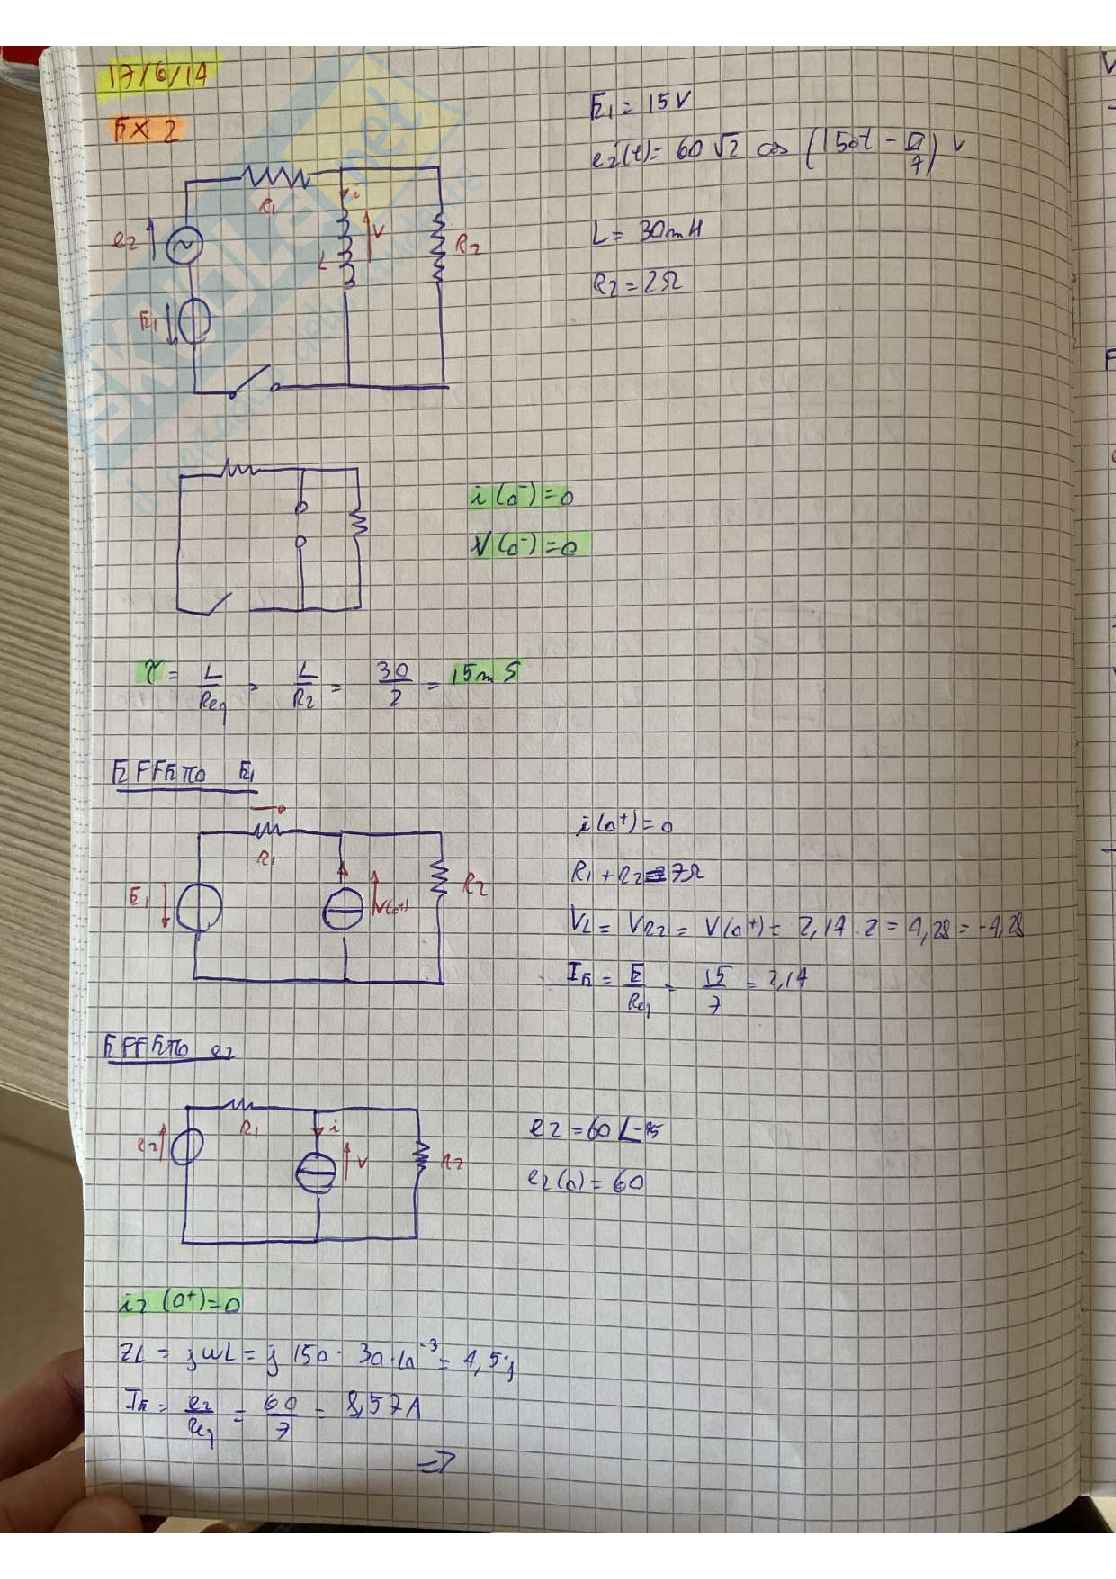 17/6/14
EX 2
E1 = 15V
e2(t) = 60 √2 cos (150t - π/4) V
L = 30mH
R2 = 2Ω
R1
i
e2
V
L
R2
E1
i(0⁻) = 0
V(0⁻) = 0
τ = L/Req = L/R2 = 30/2 = 15m S
EFFETTO E1
R1
E1
V(0+)
R2
i(0⁺) = 0
R1 + R2 = 7Ω
VL = VR2 = V(0⁺) = 2,14 · 2 = 4,28 = -4,28
IE = E/Req = 15/7 = 2,14
EFFETTO e2
R1
i
e2
V
R2
e2 = 60 ∠-45
e2(0) = 60
i2 (0⁺) = 0
ZL = jωL = j 150 · 30·10⁻³ = 4,5j
IE = e2/Req = 60/7 = 8,57A
=>